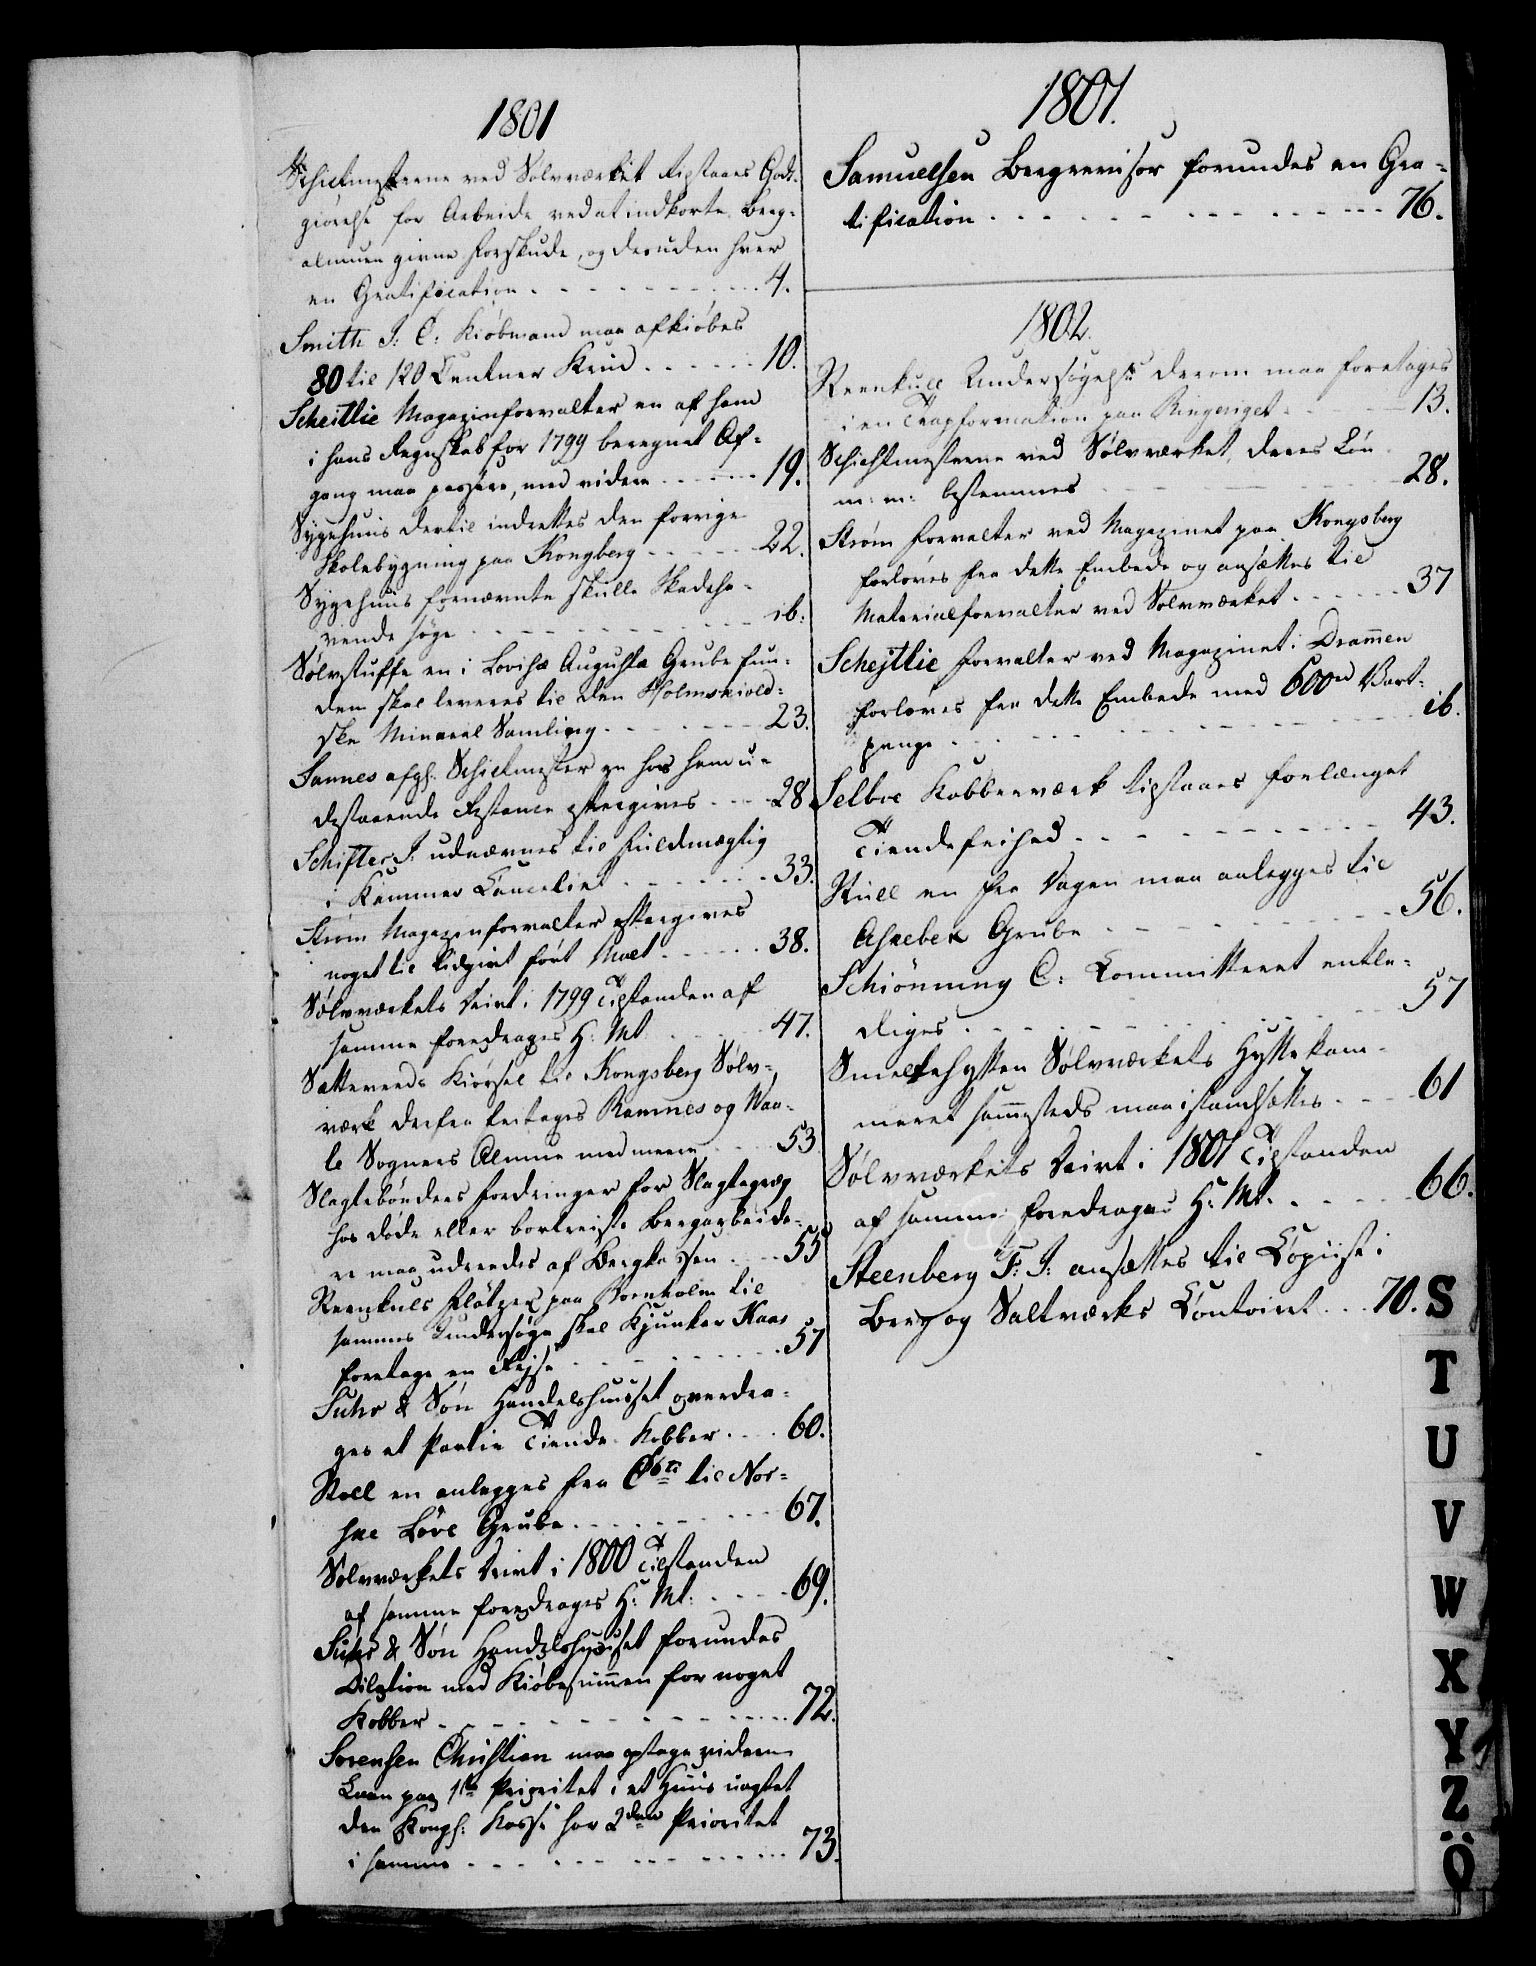 1801
Schictmesterne ved Sølvværket tilstaaes Godt-
giørelse for Arbeide ved at indkorte Berg-
almuen givne Forskude, og desuden hver
en Gratification 4.
Smith J: C: Kiøbmand maa afkiøbes
80 til 120 Centner Krud 10.
Scheitlie Magazinforvalter en af ham
i hans Regnskab for 1799 beregnet Af-
gang maa passere, med videre 19.
Sygehuus dertil indrettes den forrige
Skolebygning paa Kongberg 22.
Sygehuus fornævnte skulle Skadeha-
vende søge ib:
Sølvstuffe en i Lovisæ Augusta Grube fun-
den skal leveres til den Holmskiold-
ske Mineral Samling 23.
Sannes afg: Schictmester en hos ham u-
destaaende Restance eftergives 28
Schifter J: udnævnes til Fuldmægtig
i Kammer Cancelliet 33.
Strøm Magazinforvalter eftergives
noget til Udgivt ført Malt 38.
Sølvværkets Drivt i 1799 Tilstanden af
samme foredrages H: Mt 47.
Sætteveeds Kiørsel til Kongsberg Sølv-
værk derfra fritages Ramnes og Waa-
le Sognes Almue med meere 53
Slagtebønders Fordringer for Slagteqvæg
hos døde eller bortreiste Bergarbeide-
re maa udredes af Bergkassen 55
Steenkuls Fløtzer paa Bornholm til
sammes Undersøge skal Kjunker Kaas
foretage en Rejse 57
Suhr & Søn Handelshuuset overdra-
ges et Partie Tiende Kobber 60.
Stoll en anlegges fra til Nor-
ske Løve Grube 67.
Sølvværkets Drivt i 1800 Tilstanden
af samme foredrages H: Mt: 69.
Suhr & Søn Handelshuuset forundes
Dilation med Kiøbesummen for noget
Kobber 72.
Sørensen Christian maa optage videre
Laan paa 1ste Prioritet i et Huus uagtet
den Kongl: Kasse har 2den Prioritet
i samme 73.
1801.
Samuelsen Bergrevisor forundes en Gra-
tification 76.
1802.
Steenkull Undersøgelse derom maa foretages
i en Trapformation paa Ringeriget 13.
Schichtmesterne ved Sølvværket, deres Løn
m: m: bestemmes 28.
Strøm Forvalter ved Magazinet paa Kongsberg
forløves fra dette Embede og ansættes til
Materialforvalter ved Sølvværket 37
Schejtlie Forvalter ved Magazinet i Dram̄en
forløves fra dette Embede med 600 rd Vart-
penge ib.
Selboe Kobberværk tilstaaes forlænget
Tiendefrihed 43.
Stull en fra Dagen maa anlegges til
Grube 56.
Schiønning C: Committeret entle-
diges 57
Smeltehytten Sølvværkets Hyttekam-
meret sam̄esteds maa istandsættes 61
Sølvværkets Drivt i 1801 Tilstanden
af samme foredrages H: Mt. 66.
Steenberg F: J: ansættes til Copiist i
Berg og Saltværks Contoiret 70.
S
T
U
V
W
X
Y
Z
Ö